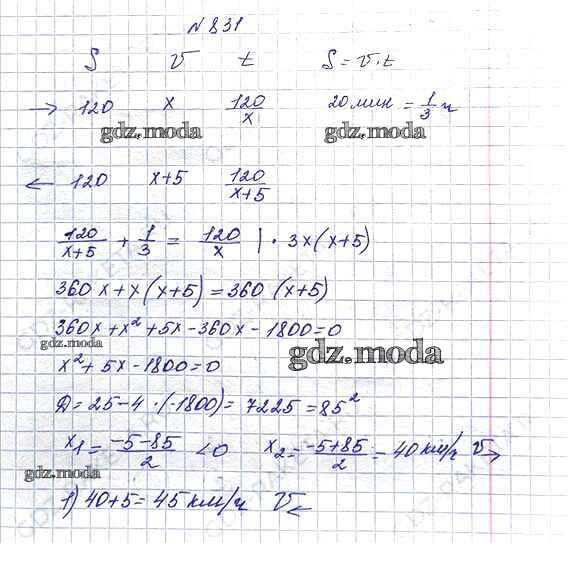 N 831
S V t S = V · t
→ 120 x 120/x 20 мин = 1/3 ч
gdz.moda gdz.moda
← 120 x+5 120/(x+5)
120/(x+5) + 1/3 = 120/x | · 3x(x+5)
360x + x(x+5) = 360(x+5)
360x + x² + 5x - 360x - 1800 = 0
gdz.moda
gdz.moda
x² + 5x - 1800 = 0
Д = 25 - 4 · (-1800) = 7225 = 85²
x₁ = (-5-85)/2 < 0 x₂ = (-5+85)/2 = 40 км/ч V→
gdz.moda
1) 40 + 5 = 45 км/ч V←